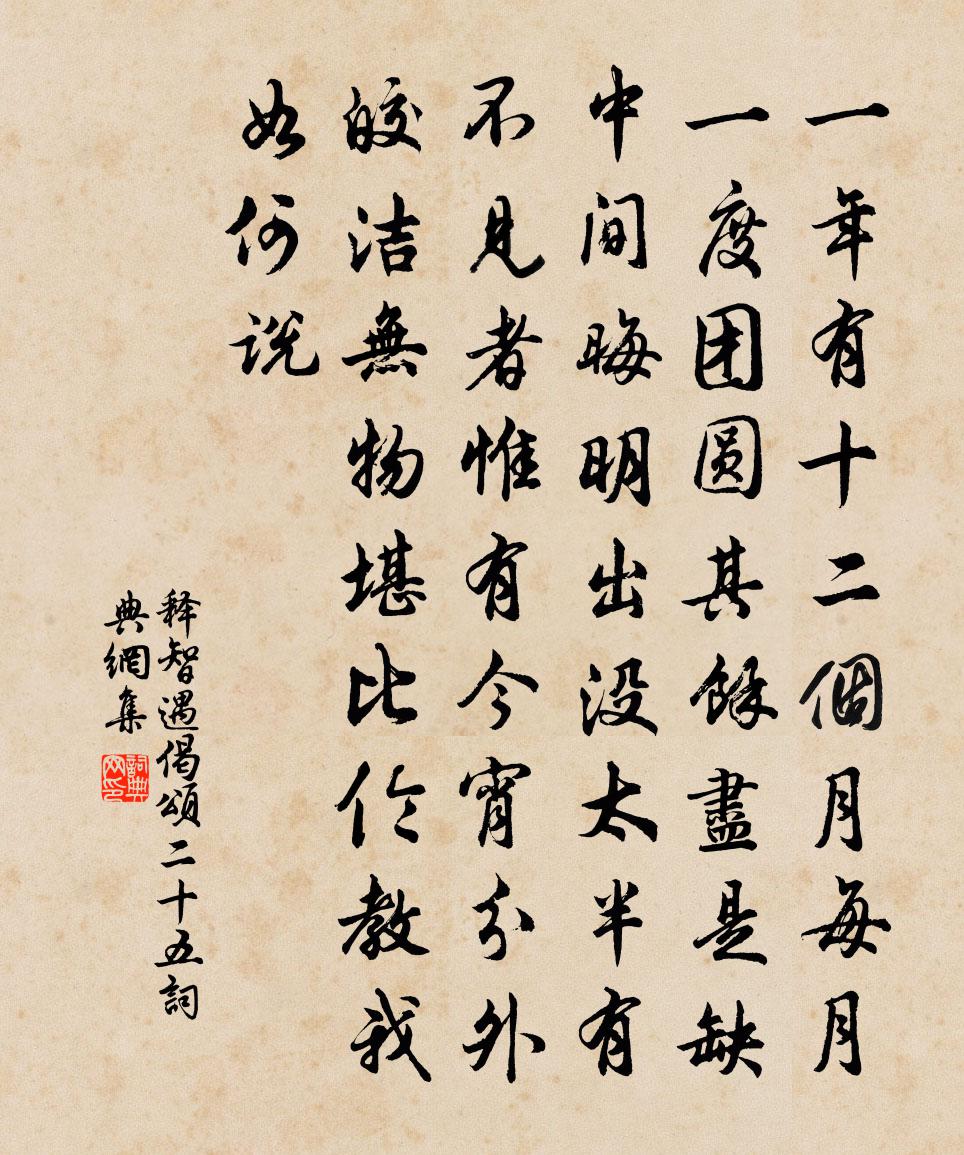 一年有十二個月每月
一度团圆其餘盡是缺
中间晦明出没太半有
不見者惟有今宵分外
皎洁無物堪比伦教我
如何说
释智遇偈頌二十五詞
典網集
詞典网印